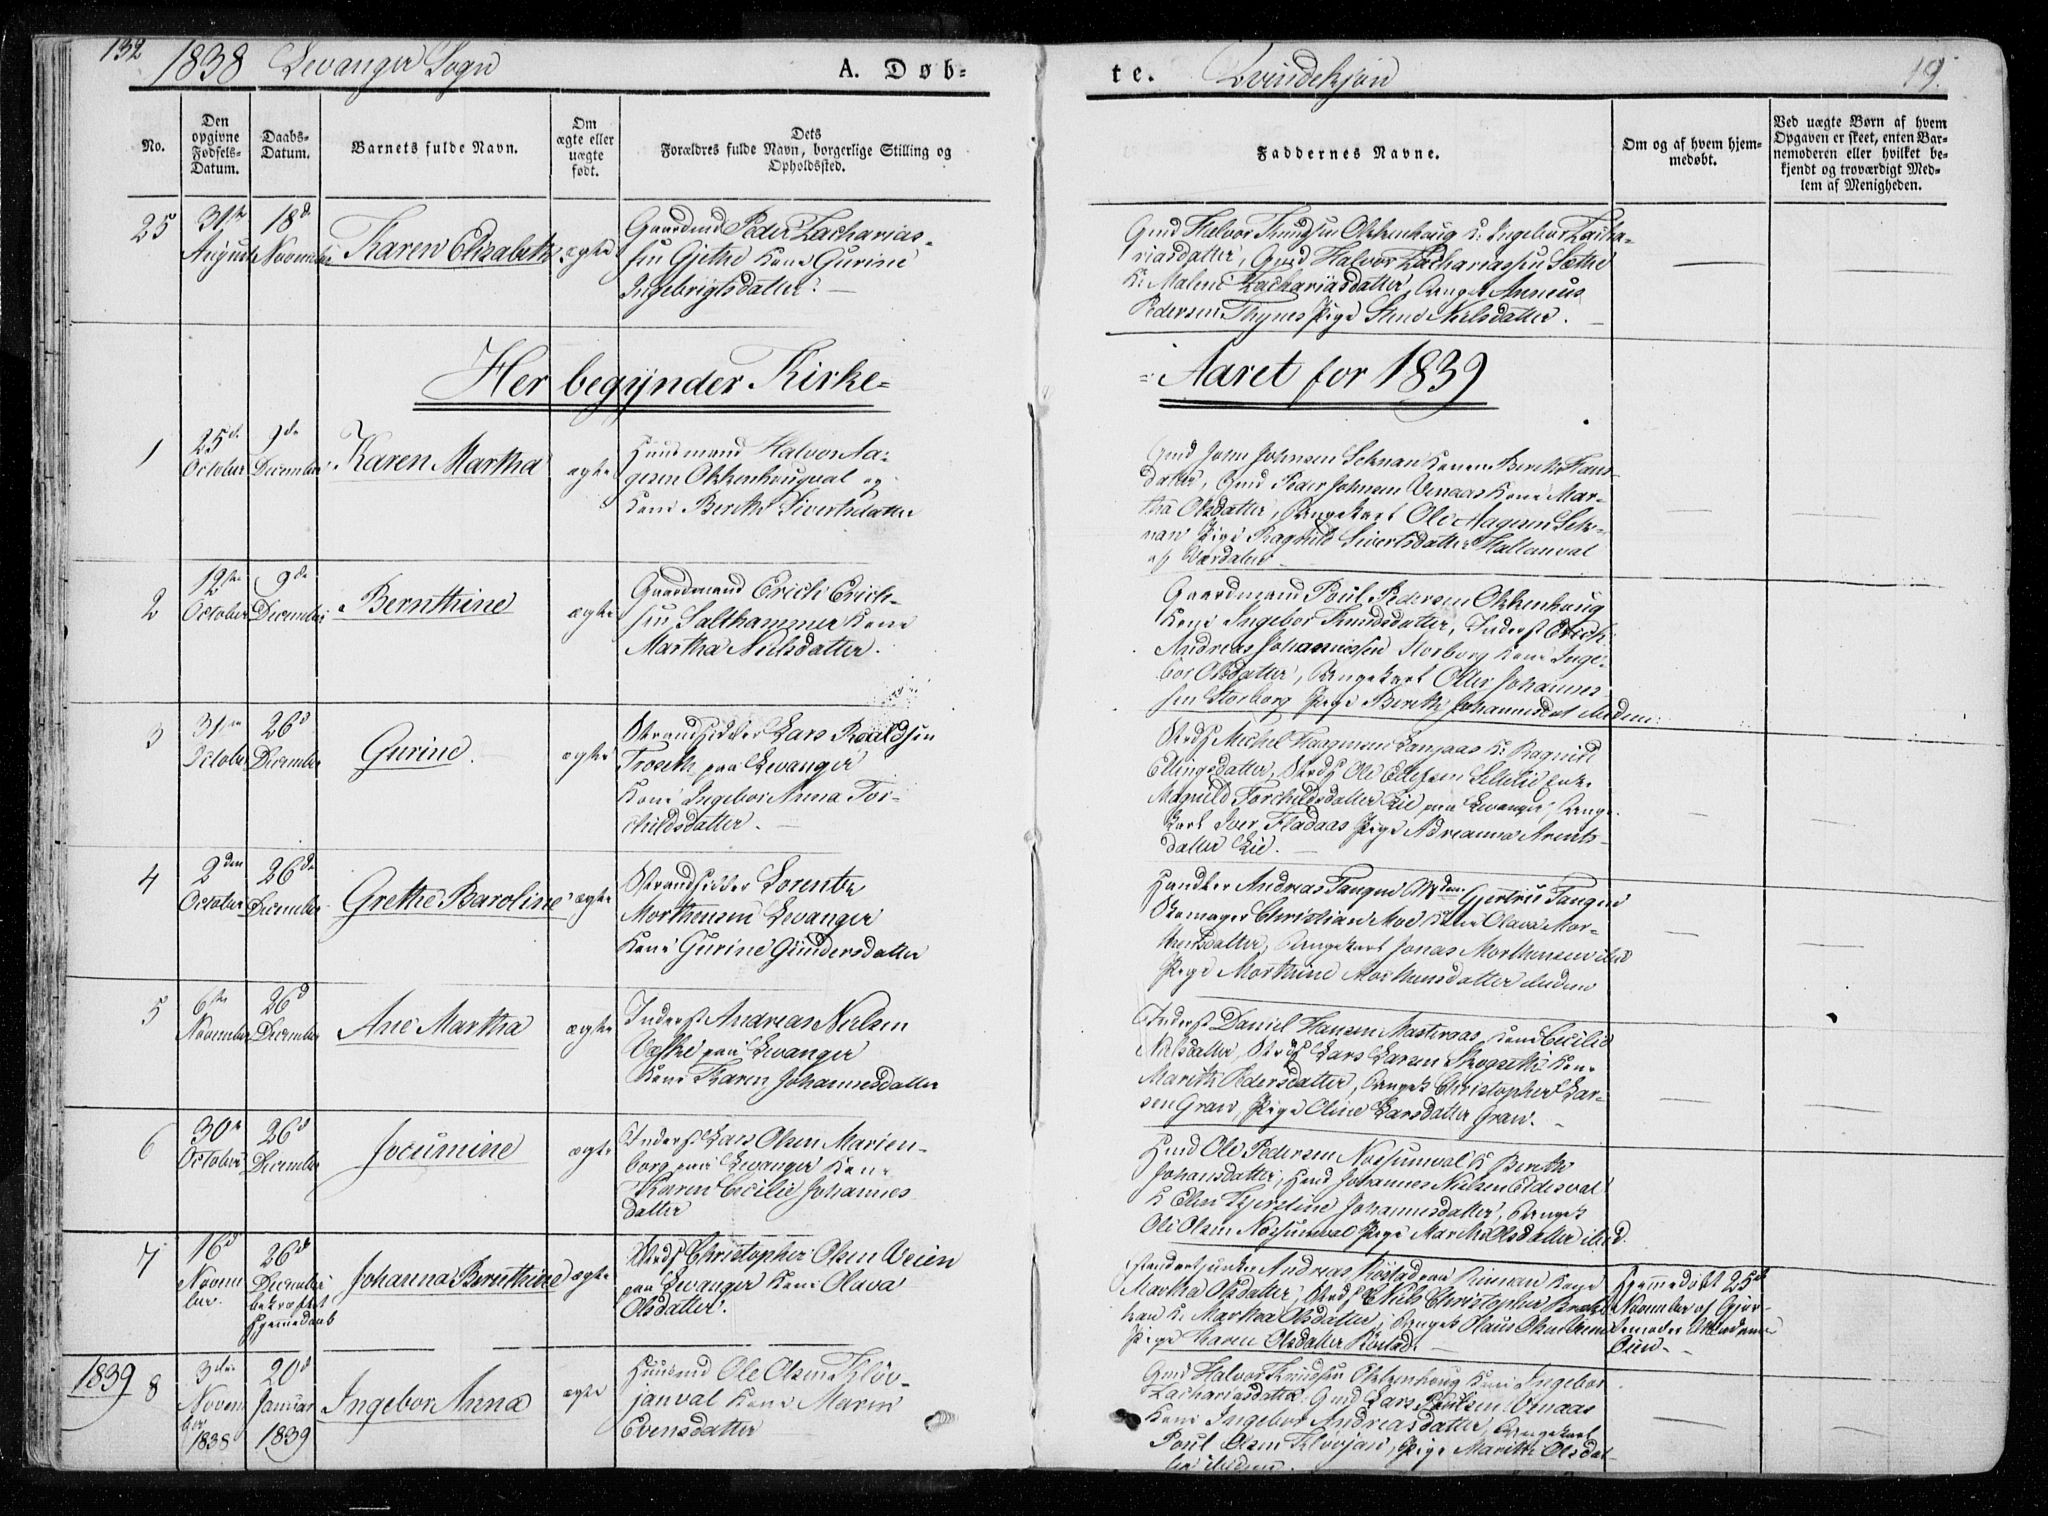 132 1838 Levanger Sogn
A. Døb-
te. Qvindekjøn
19.
No.
Den opgivne Fødsels-Datum.
Daabs-Datum.
Barnets fulde Navn.
Om ægte eller uægte født.
Dets Forældres fulde Navn, borgerlige Stilling og Opholdssted.
Faddernes Navne.
Om og af hvem hjem-medøbt.
Ved uægte Børn af hvem
Opgaven er skeet, enten Bar-
nemoderen eller hvilket be-
kjendt og troværdigt Med-
lem af Menigheden.
25
31te August
18d Novembr
Karen Elisabeth
ægte
Gaardmd Peder Zacharias-
sen Gjethe Kone Gurine
Ingebrigtsdatter.
Gmd Halvor Knudsen Okkenhoug K. Ingebor Zacha-
riasdatter, Gmd Halvor Zachariassen Sæthe
K. Malene Zachariasdatter, Ungk Anneus
Pedersen Thynes Pige Stene Nielsdatter.
Her begynder Kirke-
Aaret for 1839
1
25de October
9de December
Karen Martha
ægte
Huusmand Halvor Aa-
gesen Okkenhougval og
Kone Bereth Sivertsdatter
Gmd John Johnsen Seknan Konen Bereth Hans-
datter, Gmd Peder Johnsen Venaas Kone Mar-
tha Olsdatter, Ungekarl Ole Aagesen Sek-
nan Pige Ragnild Sivertsdatter Hallanval
af Værdalen
2
12te October
9de December
Bernthine
ægte
Gaardmand Erich Erich-
sen Salthammer Kone
Martha Nielsdatter.
Gaardmand Poul Pedersen Okkenhoug
Kone Ingebor Knudsdatter, Inderst Erich
Andreas Johannessen Storborg Kone Inge-
bor Olsdatter, Ungekarl Oller Johannes
sen Storborg Pige Bereth Johannesdat ibidem
3
31te October
26d December
Gurine.
ægte
Strandsidder Lars Roaldsen
Troseth paa Levanger
Kone Ingebor Anna Tor-
childsdatter.
Strds Michel Haagensen K. Ragnild
Ellingsdatter, Strds Ole
Magnild Torchildsdatter Lie paa Levanger, Unge
karl Iver Fladaas Pige Adrianna Arents-
datter Lie.
4
2den October
26de December
Grethe Baroline
ægte
Strandsidder Lorents
Morthensen Levanger
Kone Gurine Gundersdatter
Handler Andreas Tangen Mdm Gjertrue Tangen
Skomager Christian Moe Kone Olava Mor-
thensdatter, Ungekarl Jonas Morthensen ibid
Pige Morthine Morthensdatter ibidem
5
6te November
26d December
Ane Martha
ægte
Inderst Andreas Nielsen
paa Levanger
Kone Karen Johannesdatter
Inderst Daniel Hansen Kone Cecilie
Nielsdatter, Strds Lars Larsen Kone
Mareth Pedersdatter, Ungk Christopher Lar-
sen Gran, Pige Oline Larsdatter Gran.
6
30te October
26d December
Jocumine
ægte
Inderst Lars Olsen Marien-
borg paa Levanger Kone
Karen Cecilie Johannes
datter
Hmd Ole Pedersen Nossumval K Bereth
Johansdatter, Hmd Johannes Nielsen Eldesval
K Elen Kjerstine Johannesdatter, Ungk
Ole Olsen Nossumval Pige Marthe Olsdatter ibid.
7
16d Novem-ber.
26de December bekræftet Hjemmedaab
Johanna Bernthine
ægte
Strds Christopher Olsen Veien
paa Levanger Kone Olava
Olsdatter.
Andreas Røstad Kone
Martha Olsdatter, Strds Niels Christopher
K. Martha Olsdatter, Ungk Olaus Olsen
Pige Karen Olsdatter Røstad.
Hjemmedøbt 25de
November af Gjor-
demoder
1839
8
3die Novem-ber 1838
20d Januar 1839
Ingebor Anna
ægte
Huusmd Ole Olsen Kløv-
janval Kone Maren
Evensdatter
Gmd Halvor Knudsen Okkenhoug Kone Ingebor
Zachariasdatter, Gmd Lars Poulsen Venaas
Kone Ingebor Andreasdatter, Ungekarl
Poul Olsen Kløvjan, Pige Marith Olsdat-
ter ibidem.